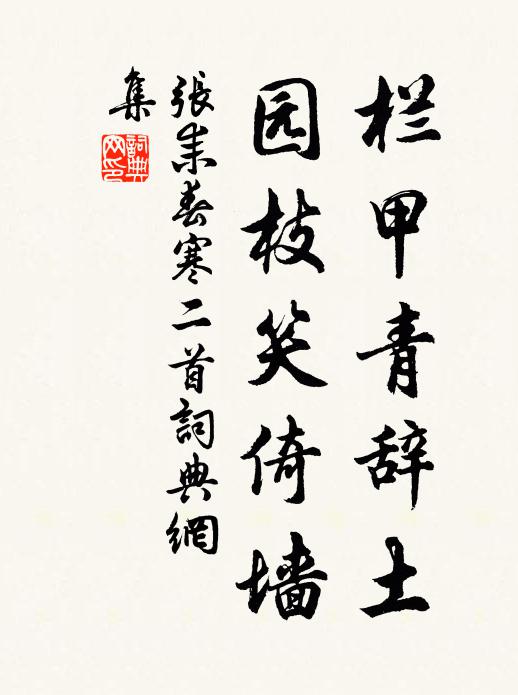 栏甲青辞土
园枝笑倚墙
張耒春寒二首詞典網
集
詞典網印